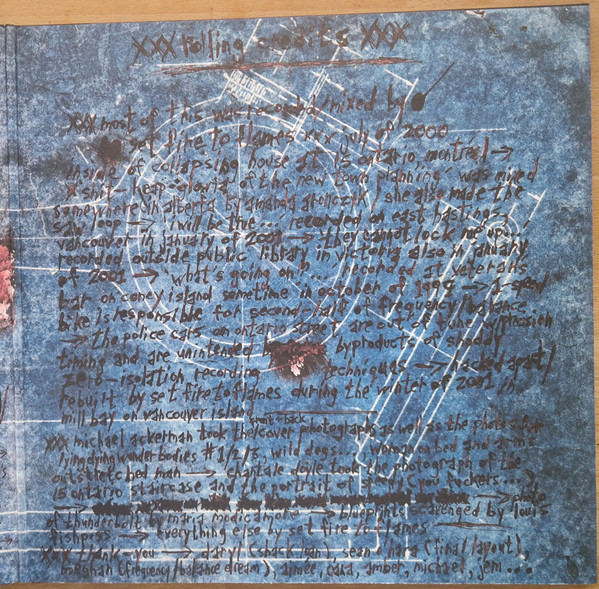 XXX Rolling credits XXX
XXX most of this was recorded/mixed by
set fire to flames xxx july of 2000
inside of collapsing house at 15 ontario, montreal →
x 'shit-heap-gloria of the new town planning' was mixed
somewhere in alberta by amanda aronczyk she also made the
saw loop → 'i will be true...' recorded on east hastings,
vancouver in january of 2001 → 'they cannot lock me up...'
recorded outside public library in victoria also in january
of 2001 → 'what's going on?...' recorded at veterans
bar on coney island sometime in october of 1999 → 2-speed
bike is responsible for second-half of frequency/balance
→ the police cars on ontario street are out of tune/precision
timing and are unintended byproducts of shoddy
zero-isolation recording techniques → hacked apart/
rebuilt by set fire to flames during the winter of 2001 in
mill bay on vancouver island
front+back
XXX michael ackerman took the cover photographs as well as the photos for
lying dying wonder bodies #1/2/3, wild dogs... woman on bed and arms
outstretched man → chantale doyle took the photograph of the
15 ontario staircase and the portrait of speedy (you fuckers...) →
photo
of thunderbolt by maria modicamore → blueprints scavenged by louis
fishpiss → everything else by set fire to flames
XXX thank-you → daryl (shack loan), sean o'hara (final layout),
meighan (frequency/balance dream), aimee, cara, amber, michael, jem...